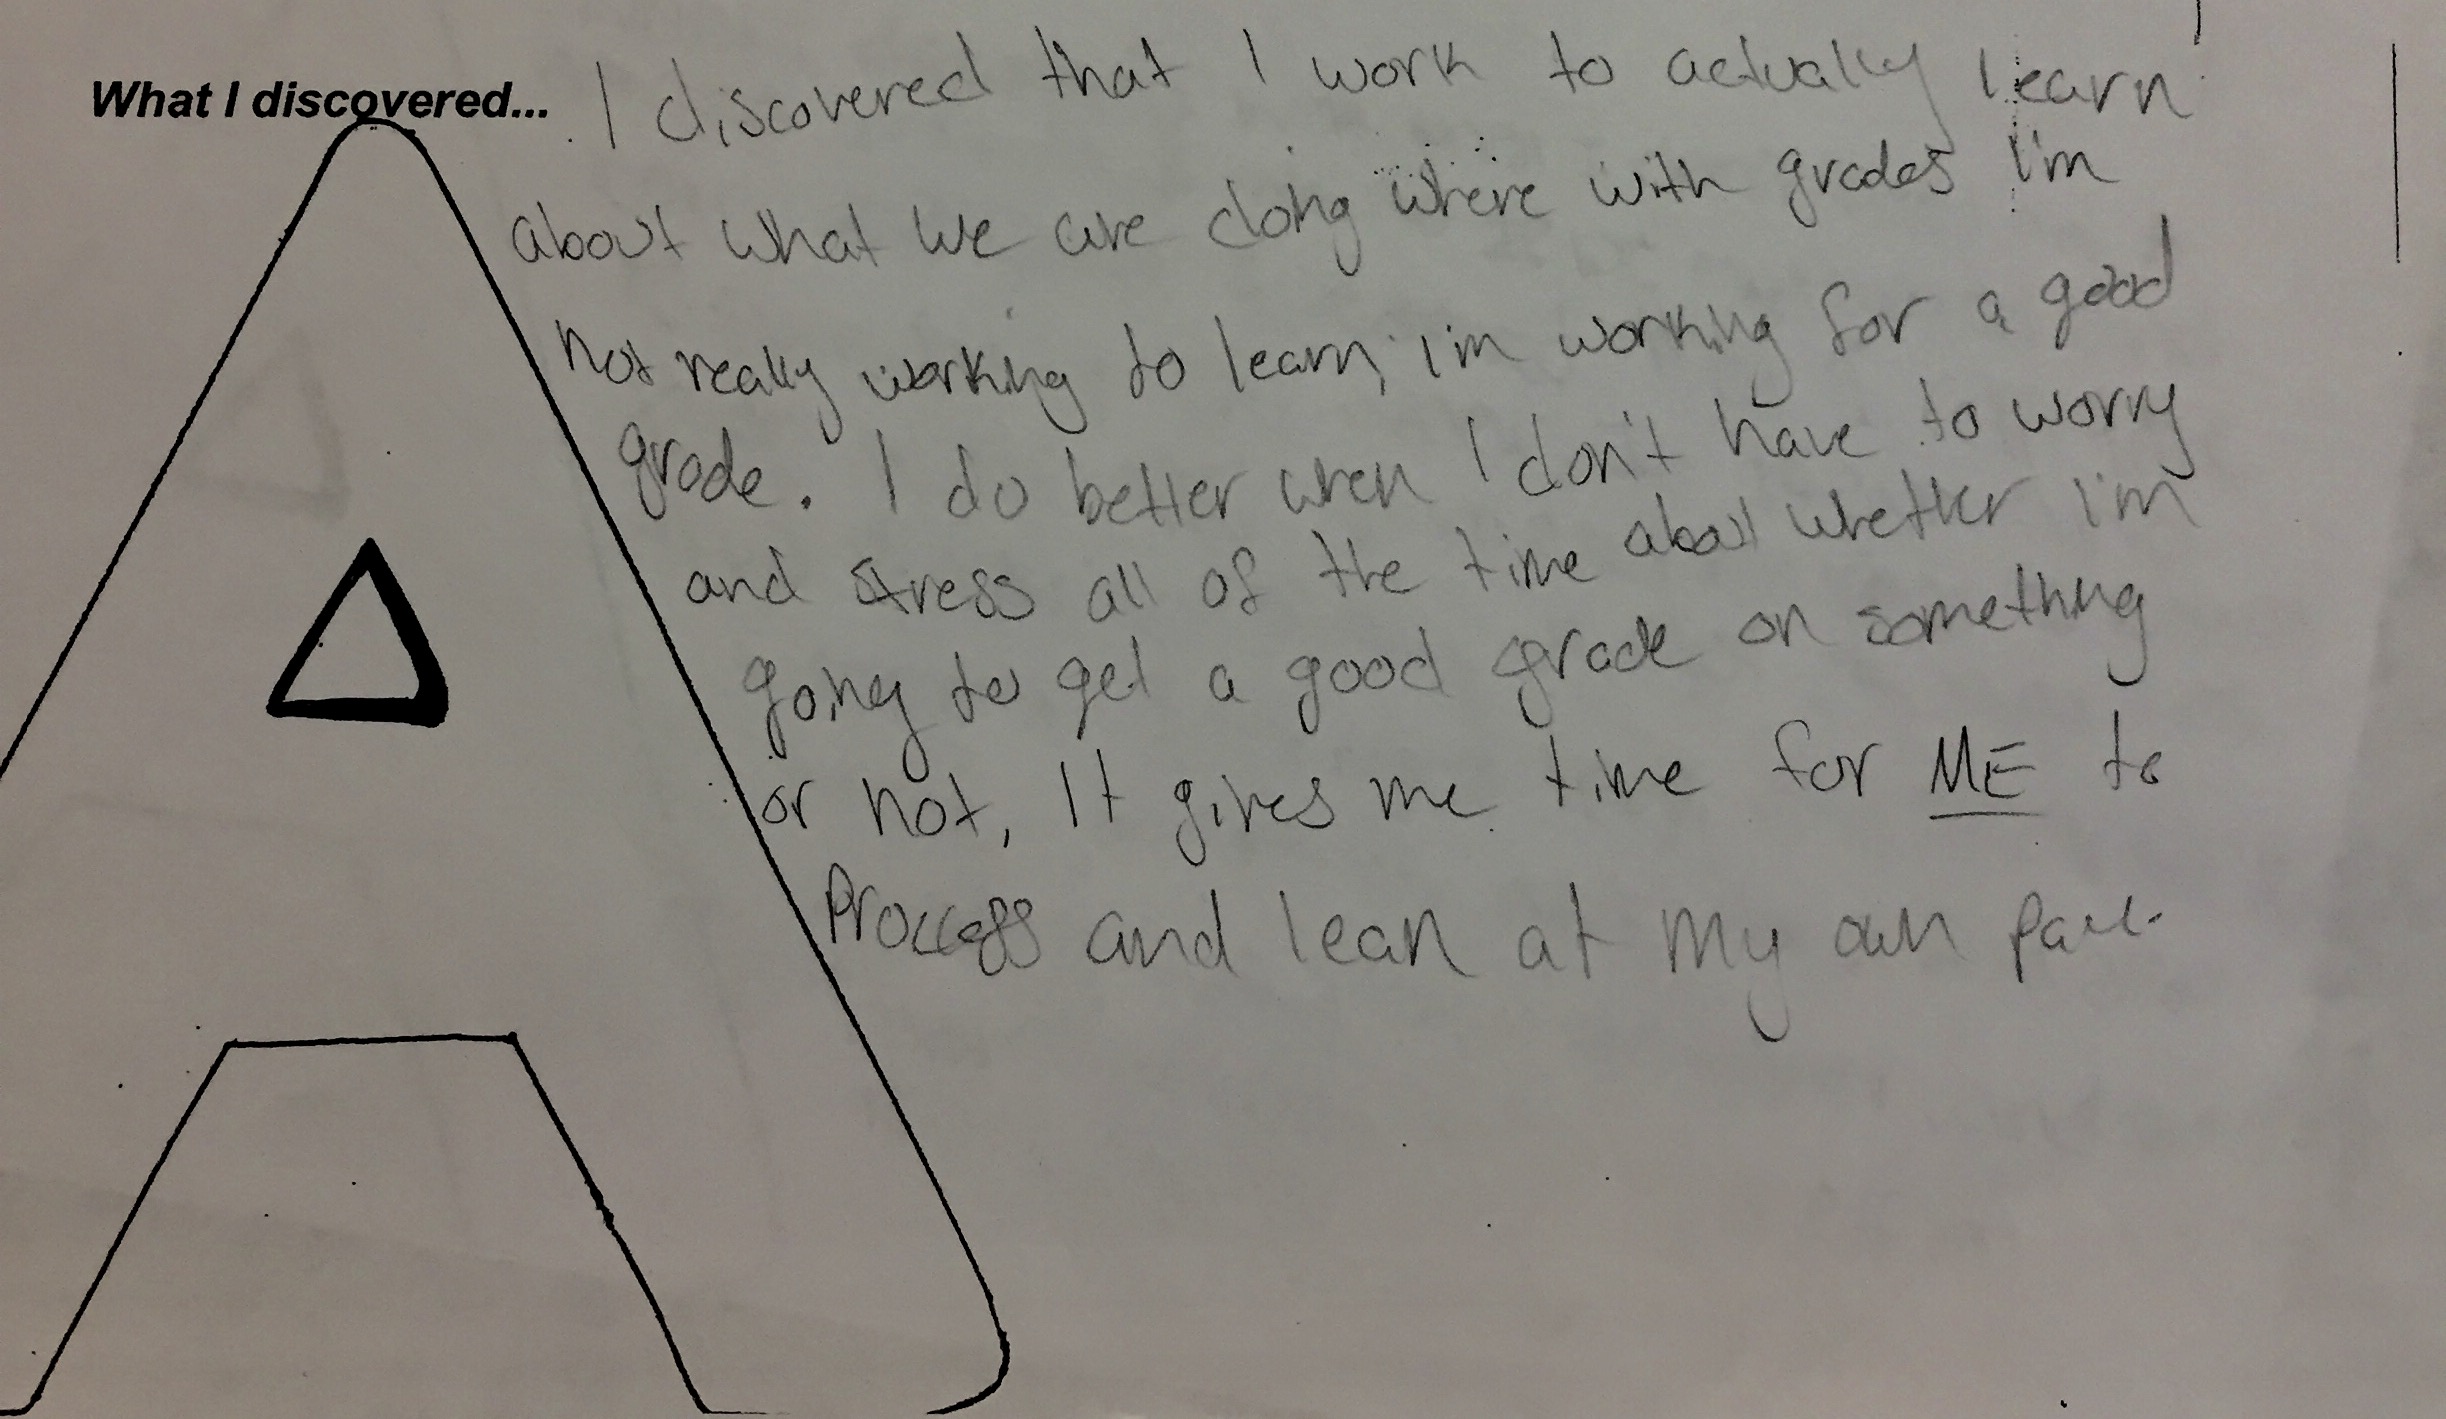 What I discovered... I discovered that I work to actually learn
about what we are doing where with grades I'm
not really working to learn, i'm working for a good
grade. I do better when I don't have to worry
and stress all of the time about whether i'm
going to get a good grade on something
or not, It gives me time for ME to
Proccess and lean at my own pace.